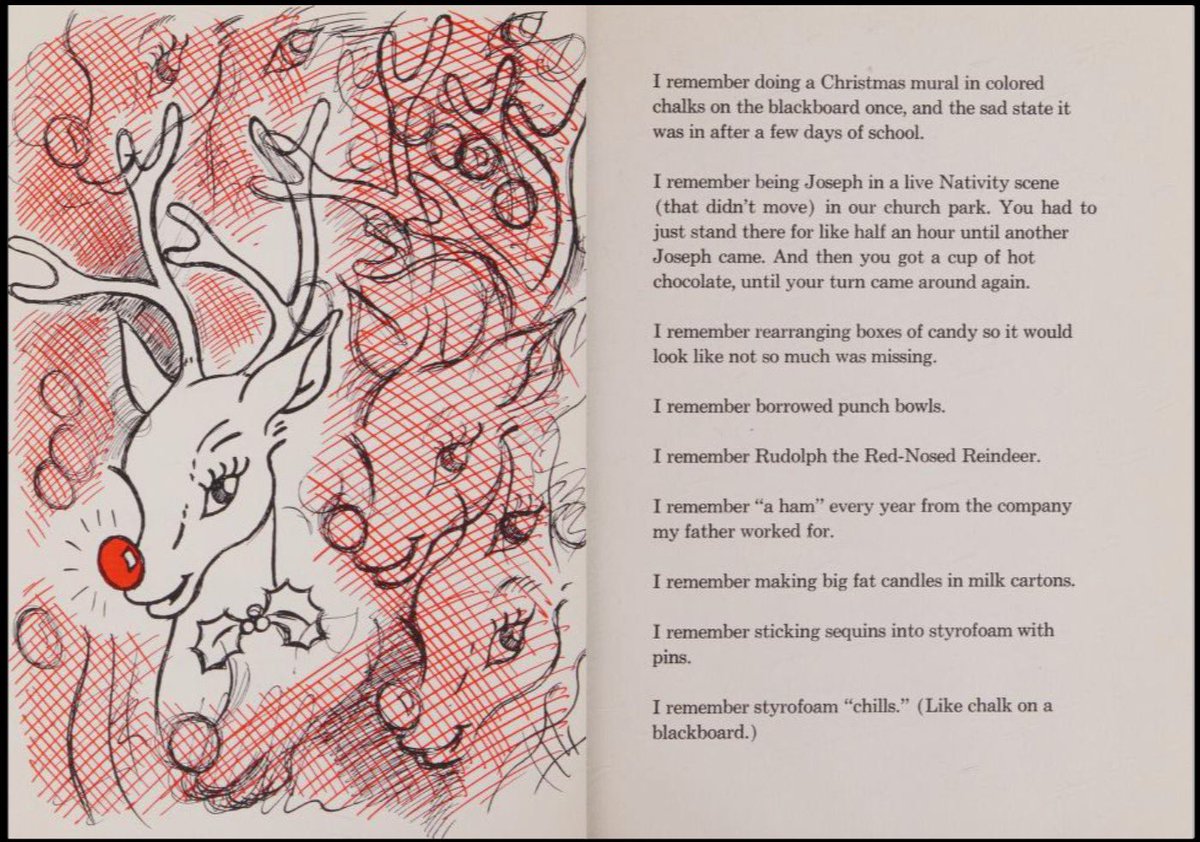 I remember doing a Christmas mural in colored
chalks on the blackboard once, and the sad state it
was in after a few days of school.
I remember being Joseph in a live Nativity scene
(that didn’t move) in our church park. You had to
just stand there for like half an hour until another
Joseph came. And then you got a cup of hot
chocolate, until your turn came around again.
I remember rearranging boxes of candy so it would
look like not so much was missing.
I remember borrowed punch bowls.
I remember Rudolph the Red-Nosed Reindeer.
I remember “a ham” every year from the company
my father worked for.
I remember making big fat candles in milk cartons.
I remember sticking sequins into styrofoam with
pins.
I remember styrofoam “chills.” (Like chalk on a
blackboard.)